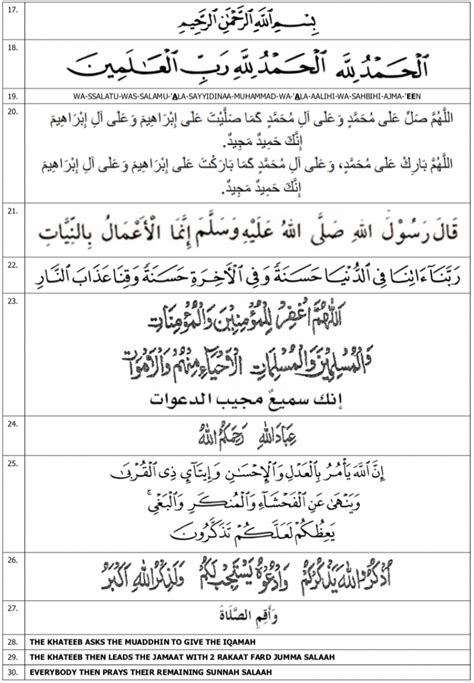 17. بِسْمِ ٱللَّهِ ٱلرَّحْمَٰنِ ٱلرَّحِيمِ
18. ٱلْحَمْدُ لِلَّهِ ٱلْحَمْدُ لِلَّهِ رَبِّ ٱلْعَـٰلَمِينَ
19. WA-SSALATU-WAS-SALAMU-'ALA-SAYYIDINAA-MUHAMMAD-WA-'ALA-AALIHI-WA-SAHBIHI-AJMA-'EEN
20. اللَّهُمَّ صَلِّ عَلَى مُحَمَّدٍ وَعَلَى آلِ مُحَمَّدٍ كَمَا صَلَّيْتَ عَلَى إِبْرَاهِيمَ وَعَلَى آلِ إِبْرَاهِيمَ
إِنَّكَ حَمِيدٌ مَجِيدٌ.
اللَّهُمَّ بَارِكْ عَلَى مُحَمَّدٍ، وَعَلَى آلِ مُحَمَّدٍ كَمَا بَارَكْتَ عَلَى إِبْرَاهِيمَ وَعَلَى آلِ إِبْرَاهِيمَ.
إِنَّكَ حَمِيدٌ مَجِيدٌ.
21. قَالَ رَسُوْلُ اللهِ صَلَّى اللهُ عَلَيْهِ وَسَلَّمَ إِنَّمَا الْأَعْمَالُ بِالنِّيَّاتِ
22. رَبَّنَآ ءَاتِنَا فِى ٱلدُّنْيَا حَسَنَةً وَفِى ٱلْأَخِرَةِ حَسَنَةً وَقِنَا عَذَابَ ٱلنَّارِ
23. اَللّٰهُمَّ اغْفِرْ لِلْمُؤْمِنِيْنَ وَالْمُؤْمِنَاتِ
وَالْمُسْلِمِيْنَ وَالْمُسْلِمَاتِ الْأَحْيَاءِ مِنْهُمْ وَالْأَمْوَاتِ
إنك سميعٌ مجيب الدعوات
24. عِبَادَاللهِ رَحِمَكُمُ اللهُ
25. إِنَّ ٱللَّهَ يَأْمُرُ بِٱلْعَدْلِ وَٱلْإِحْسَـٰنِ وَإِيتَآىِٕ ذِى ٱلْقُرْبَىٰ
وَيَنْهَىٰ عَنِ ٱلْفَحْشَآءِ وَٱلْمُنكَرِ وَٱلْبَغْىِ ۚ
يَعِظُكُمْ لَعَلَّكُمْ تَذَكَّرُونَ
26. اُذْكُرُوا اللهَ يَذْكُرْكُمْ وَادْعُوْهُ يَسْتَجِبْ لَكُمْ وَلَذِكْرُ اللهِ اَكْبَرُ
27. وَأَقِمِ الصَّلَاةَ
28. THE KHATEEB ASKS THE MUADDHIN TO GIVE THE IQAMAH
29. THE KHATEEB THEN LEADS THE JAMAAT WITH 2 RAKAAT FARD JUMMA SALAAH
30. EVERYBODY THEN PRAYS THEIR REMAINING SUNNAH SALAAH